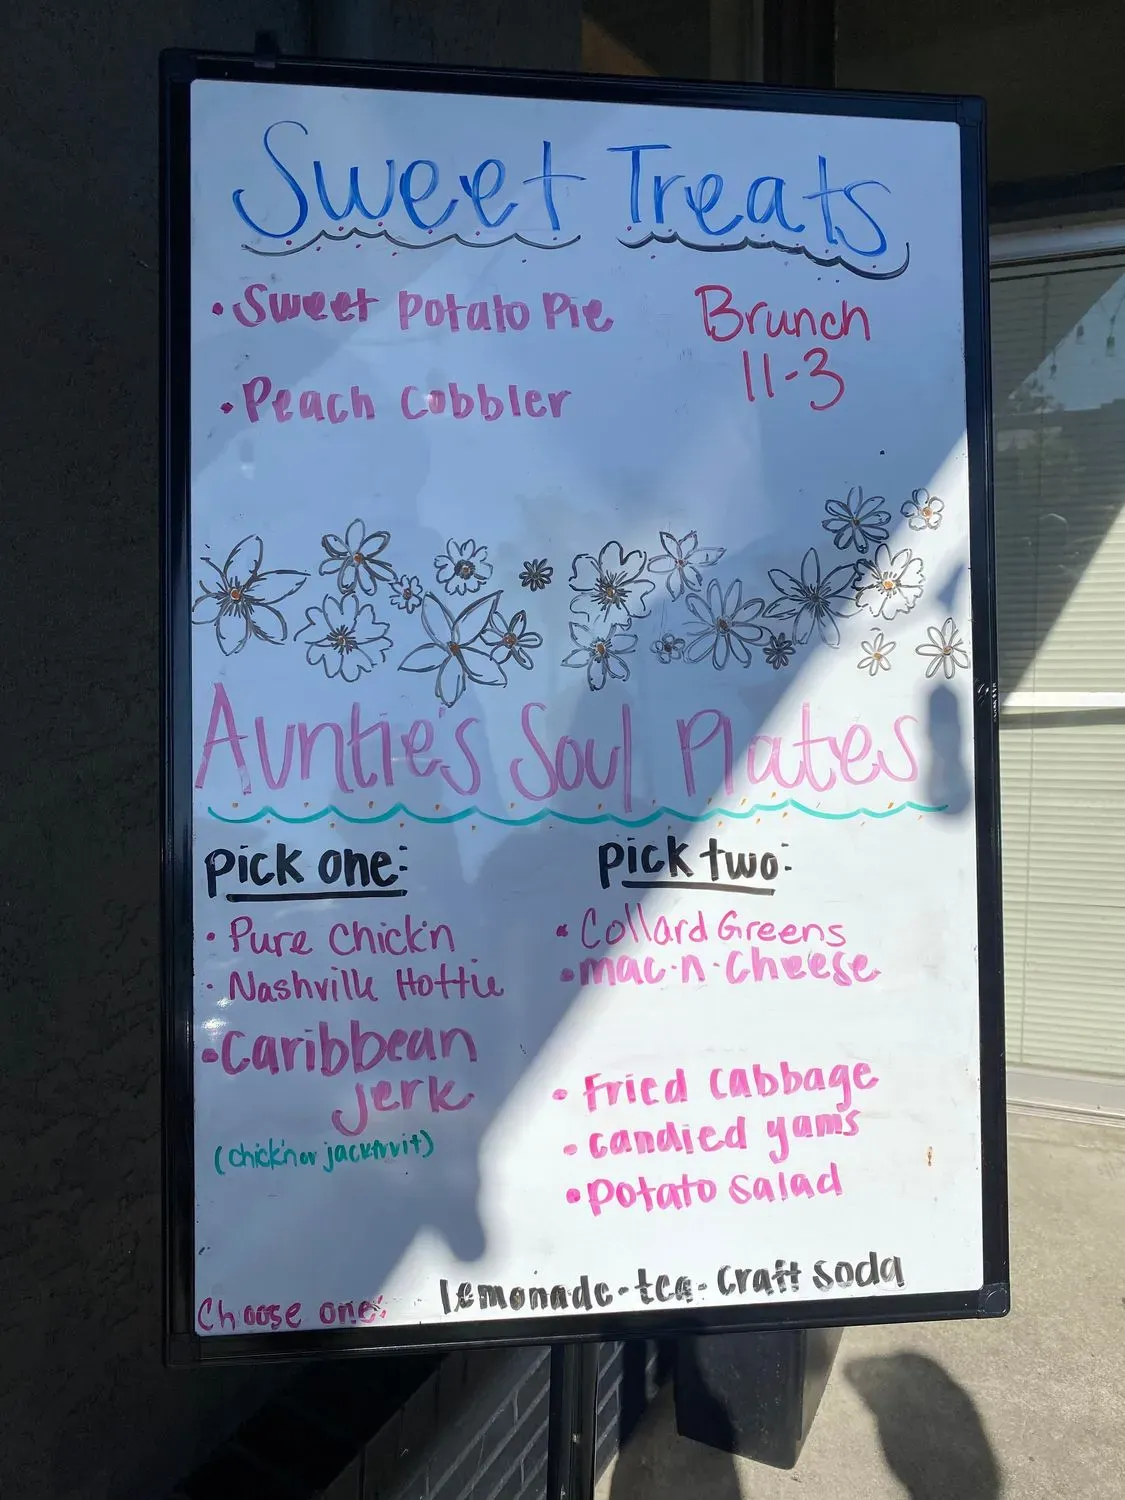 Sweet Treats
• Sweet Potato Pie
• Peach Cobbler
Brunch
11-3
Auntie's Soul Plates
Pick one:
• Pure Chick'n
• Nashville Hottie
• Caribbean
Jerk
(chick'n or jackfruit)
Pick two:
• Collard Greens
• mac-n-cheese
• Fried Cabbage
• candied yams
• potato salad
Choose one:
lemonade-tea-craft soda